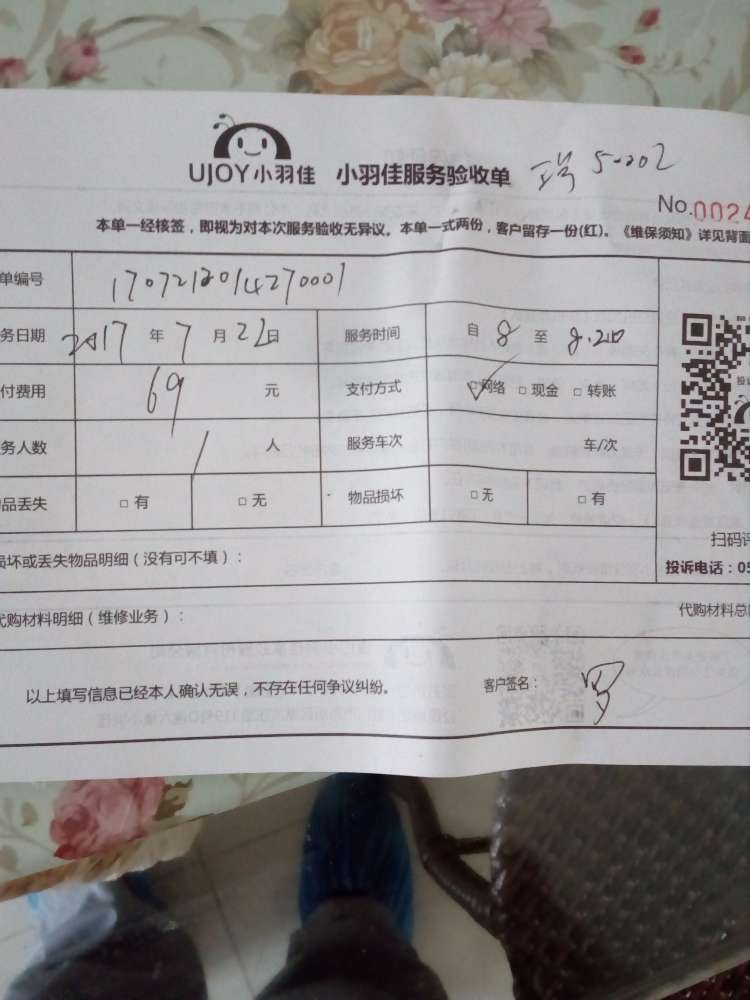 UJOY小羽佳 小羽佳服务验收单 瑞 5-202
No.0024
本单一经核签，即视为对本次服务验收无异议。本单一式两份，客户留存一份(红)。《维保须知》详见背面
单编号 1707212014270001
务日期 2017 年 7 月 22 日 服务时间 自 8 至 8.20
付费用 69 元 支付方式 □网络 □ 现金 □ 转账
务人数 1 人 服务车次 车/次
品丢失 □ 有 □ 无 物品损坏 □ 无 □ 有
损坏或丢失物品明细（没有可不填）：
扫码评
投诉电话：05
代购材料明细（维修业务）： 代购材料总
以上填写信息已经本人确认无误，不存在任何争议纠纷。 客户签名： 罗